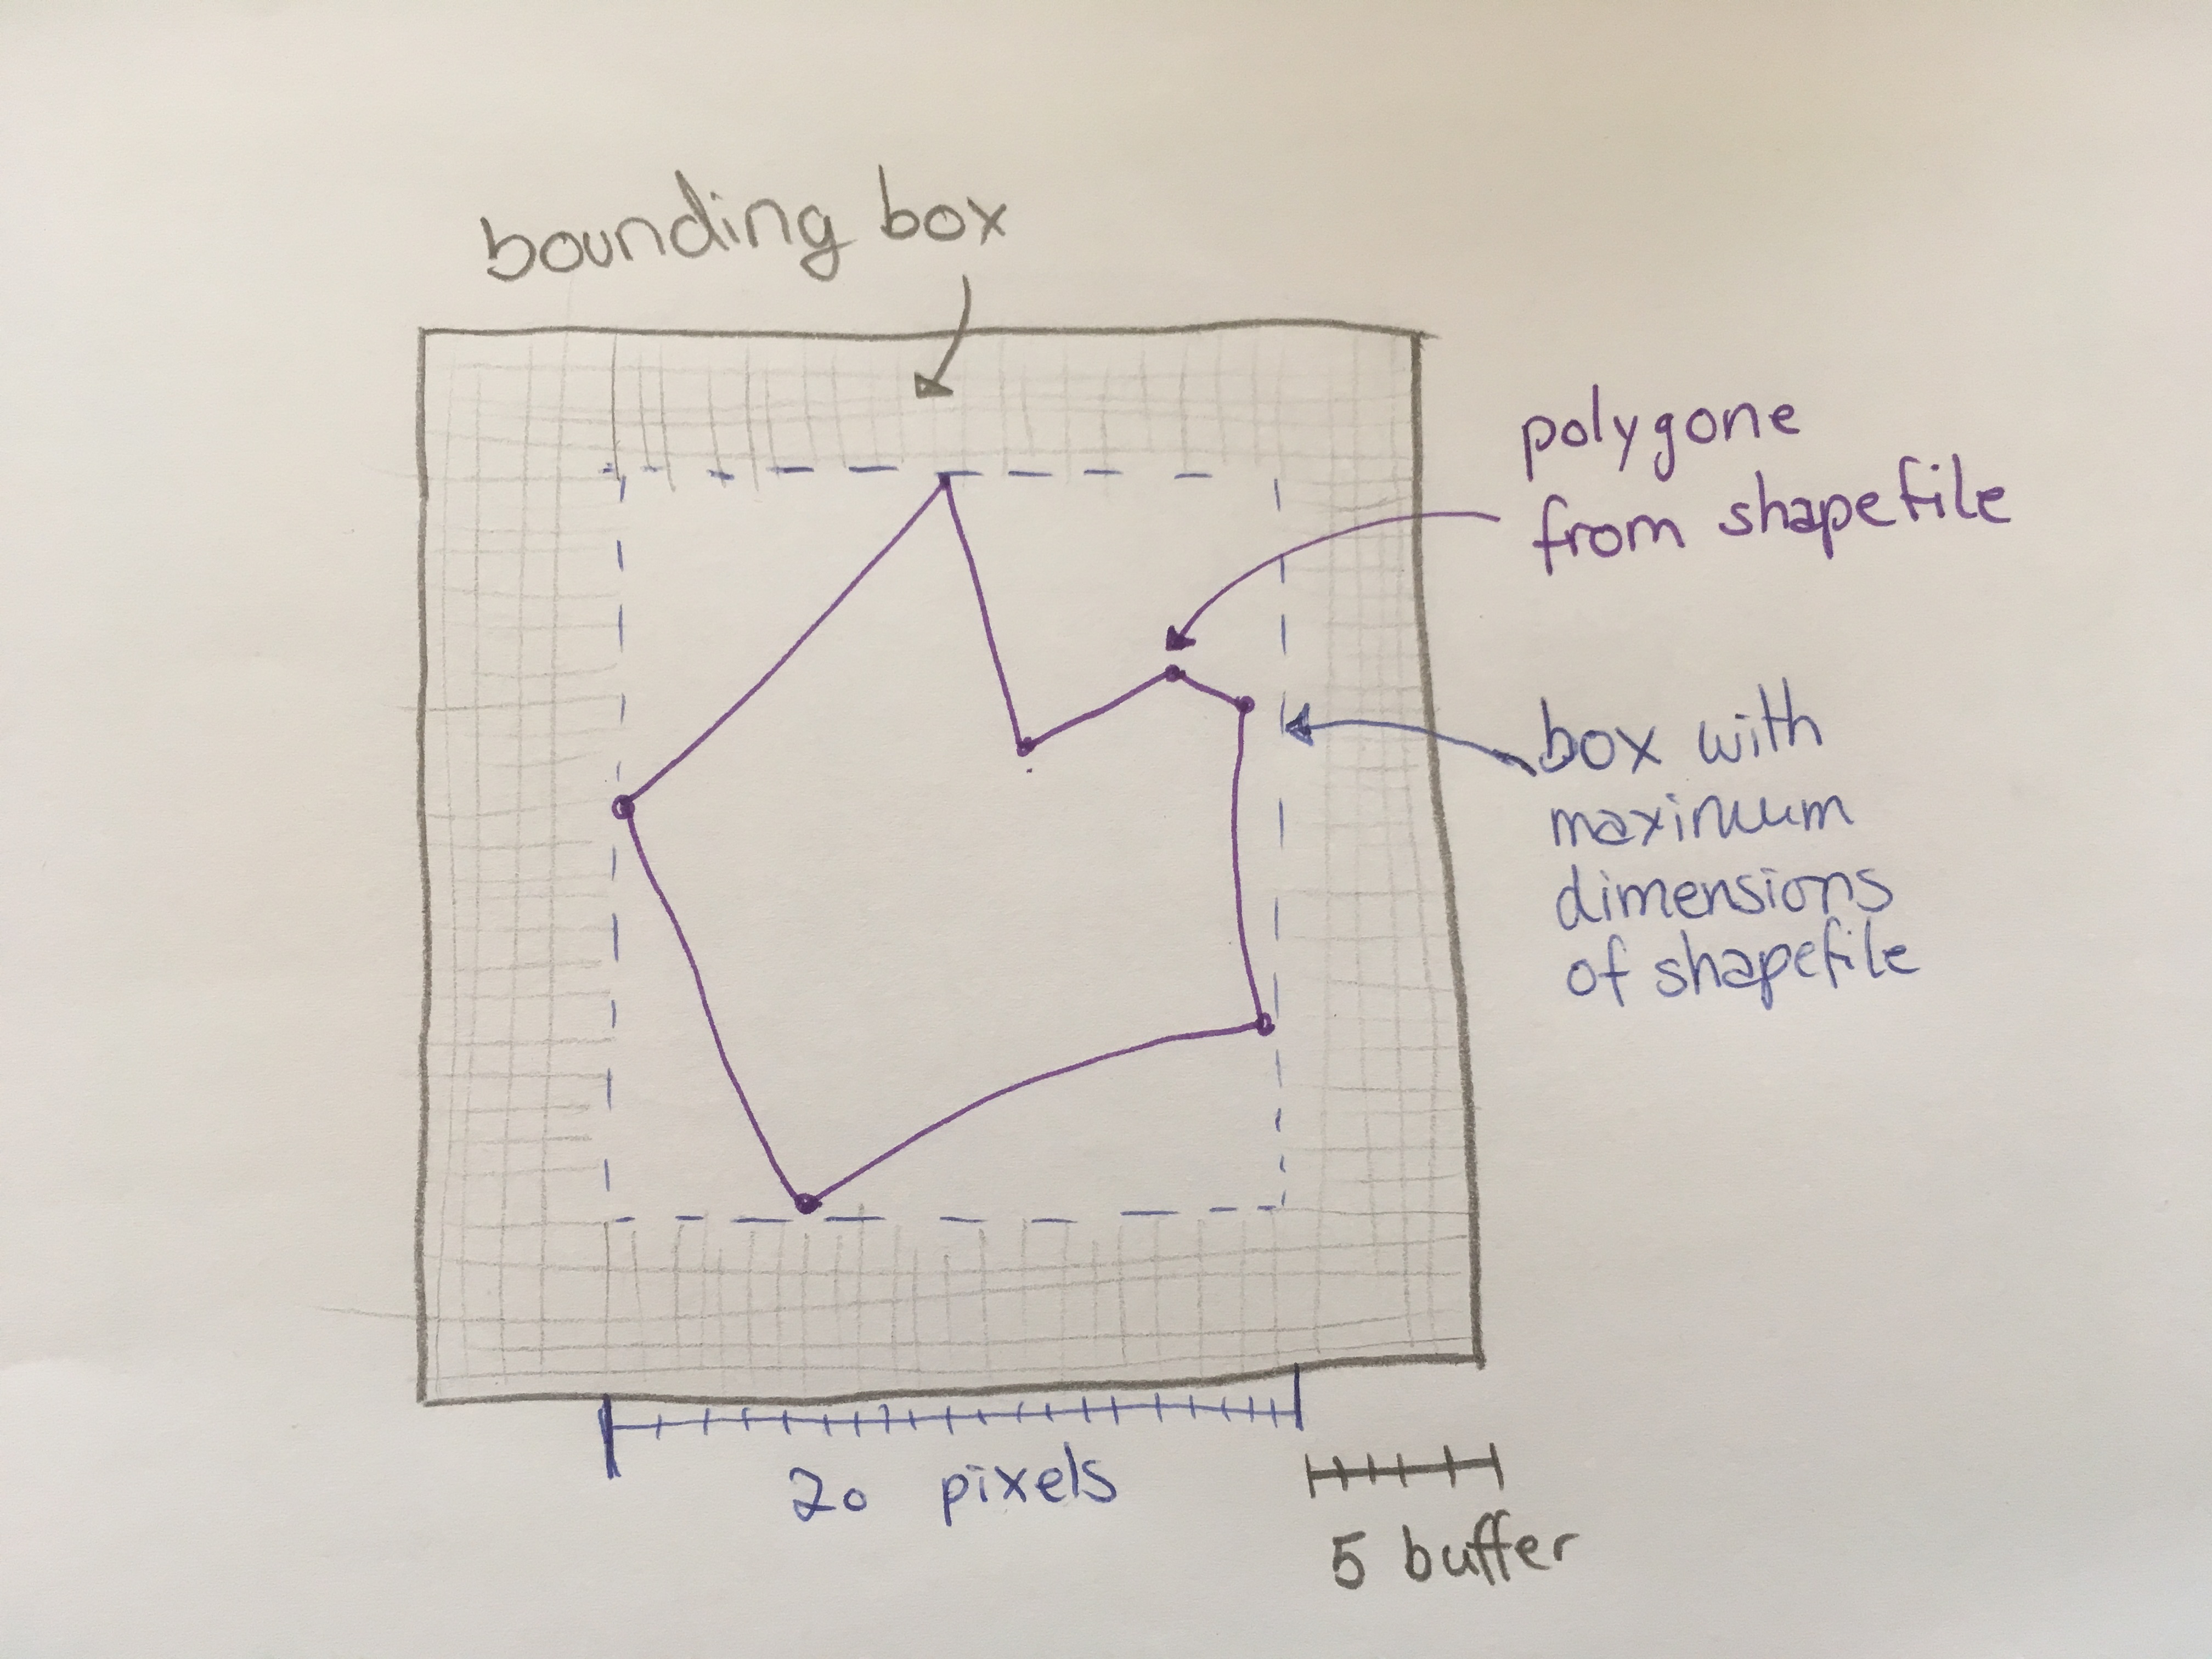 bounding box
polygone
from shapefile
box with
maximum
dimensions
of shapefile
20 pixels
5 buffer